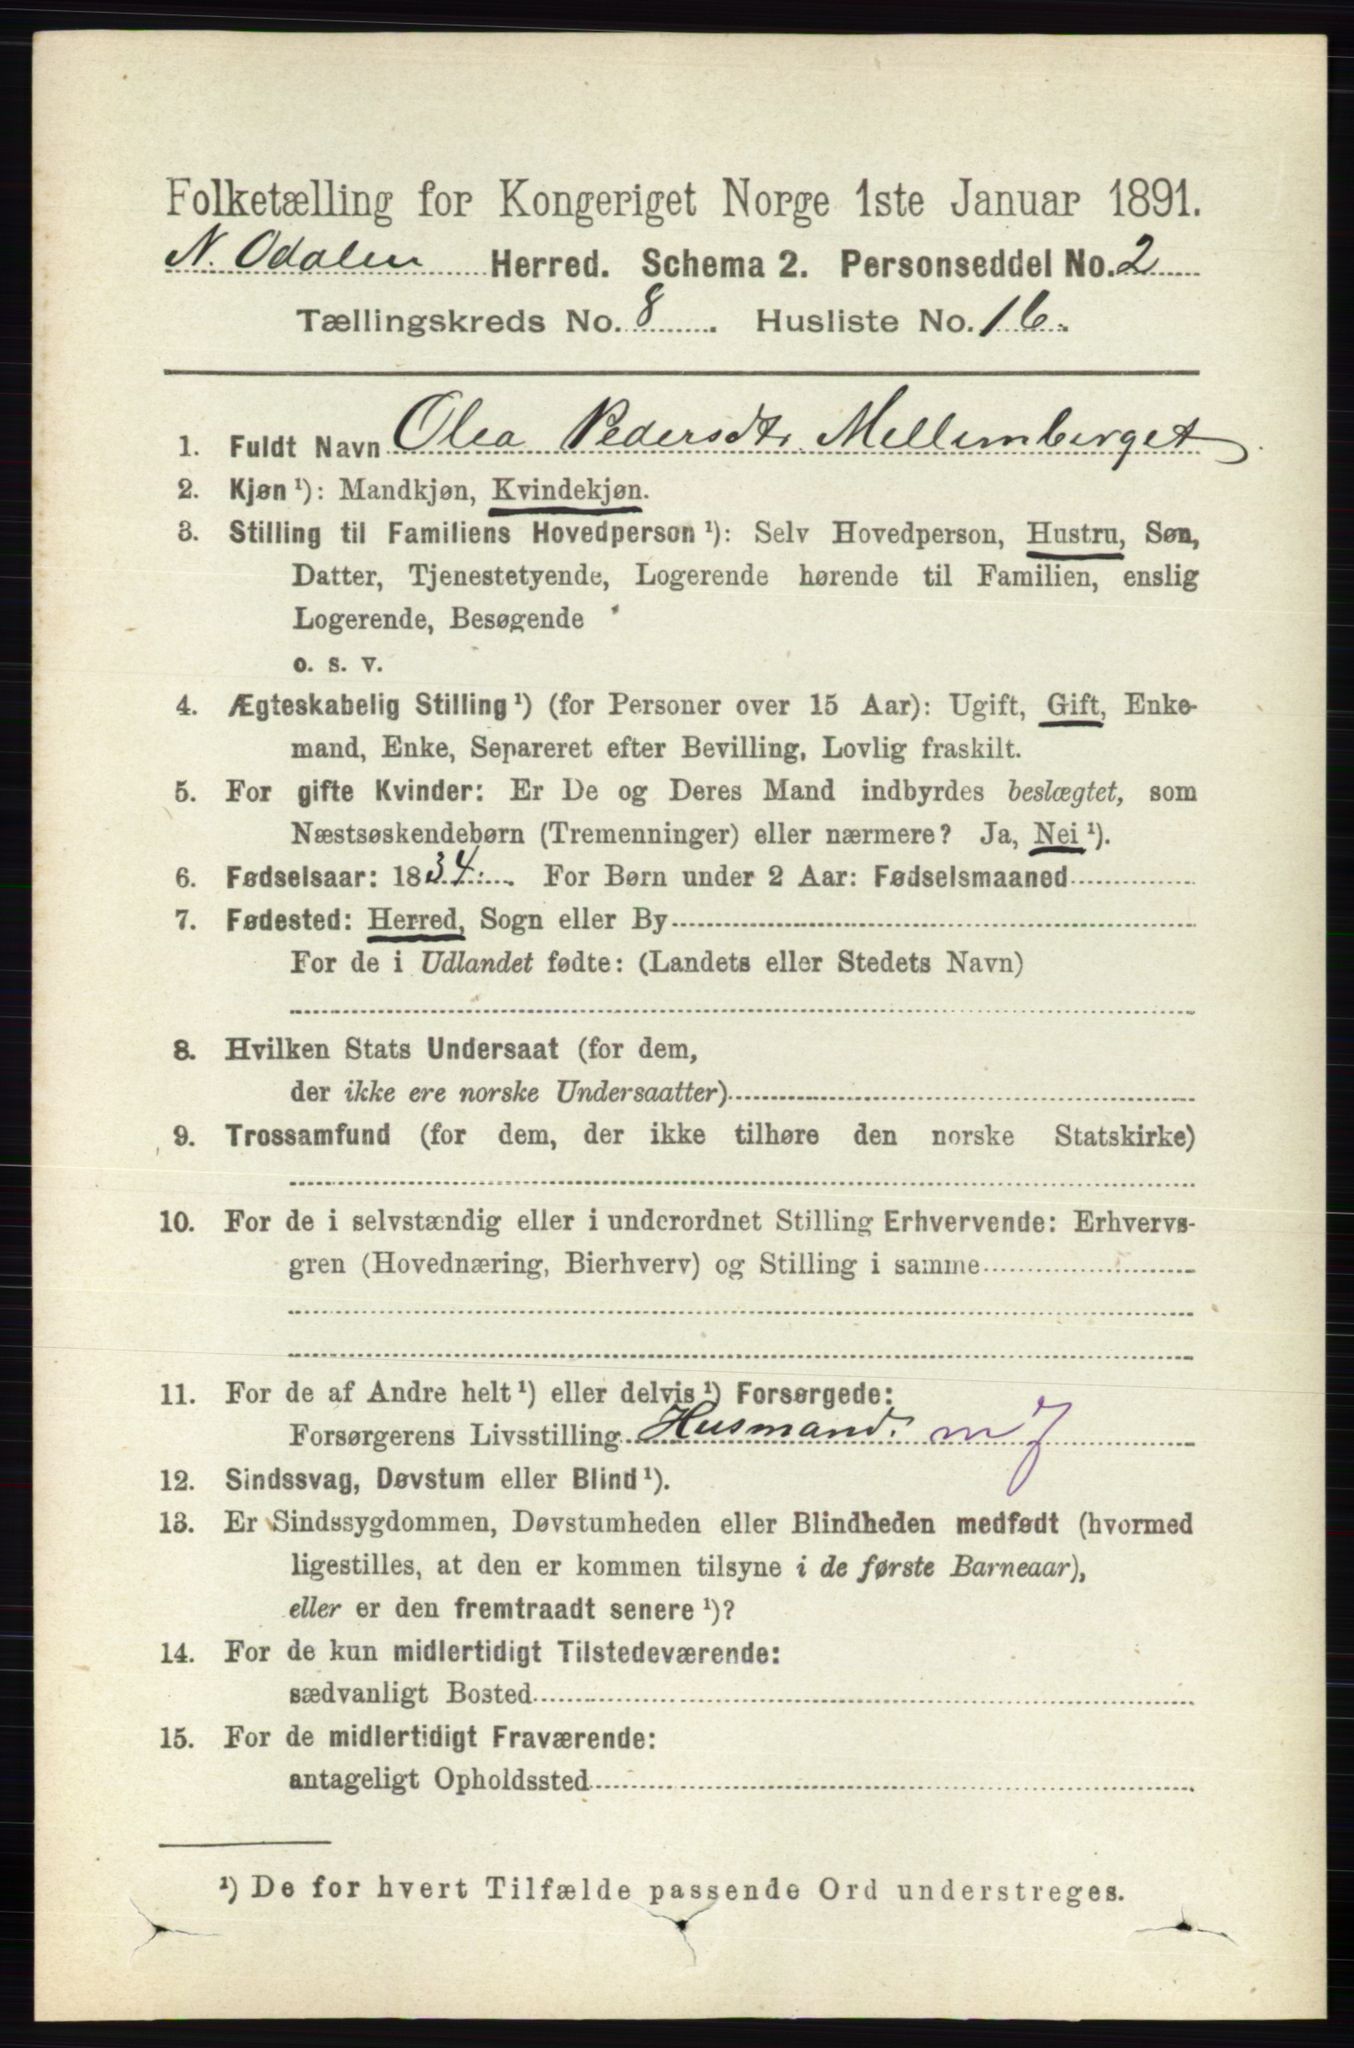 Folketælling for Kongeriget Norge 1ste Januar 1891.
N. Odalen Herred. Schema 2. Personseddel No. 2
Tællingskreds No. 8. Husliste No. 16.
1. Fuldt Navn Olea Pedersdt. Mellemberget
2. Kjøn ¹): Mandkjøn, Kvindekjøn.
3. Stilling til Familiens Hovedperson ¹): Selv Hovedperson, Hustru, Søn,
Datter, Tjenestetyende, Logerende hørende til Familien, enslig
Logerende, Besøgende
o. s. v.
4. Ægteskabelig Stilling ¹) (for Personer over 15 Aar): Ugift, Gift, Enke-
mand, Enke, Separeret efter Bevilling, Lovlig fraskilt.
5. For gifte Kvinder: Er De og Deres Mand indbyrdes beslægtet, som
Næstsøskendebørn (Tremenninger) eller nærmere? Ja, Nei ¹).
6. Fødselsaar: 1834. For Børn under 2 Aar: Fødselsmaaned
7. Fødested: Herred, Sogn eller By
For de i Udlandet fødte: (Landets eller Stedets Navn)
8. Hvilken Stats Undersaat (for dem,
der ikke ere norske Undersaatter)
9. Trossamfund (for dem, der ikke tilhøre den norske Statskirke)
10. For de i selvstændig eller i underordnet Stilling Erhvervende: Erhvervs-
gren (Hovednæring, Bierhverv) og Stilling i samme
11. For de af Andre helt ¹) eller delvis ¹) Forsørgede:
Forsørgerens Livsstilling Husmand. m J
12. Sindssvag, Døvstum eller Blind ¹).
13. Er Sindssygdommen, Døvstumheden eller Blindheden medfødt (hvormed
ligestilles, at den er kommen tilsyne i de første Barneaar),
eller er den fremtraadt senere ¹)?
14. For de kun midlertidigt Tilstedeværende:
sædvanligt Bosted
15. For de midlertidigt Fraværende:
antageligt Opholdssted
¹) De for hvert Tilfælde passende Ord understreges.